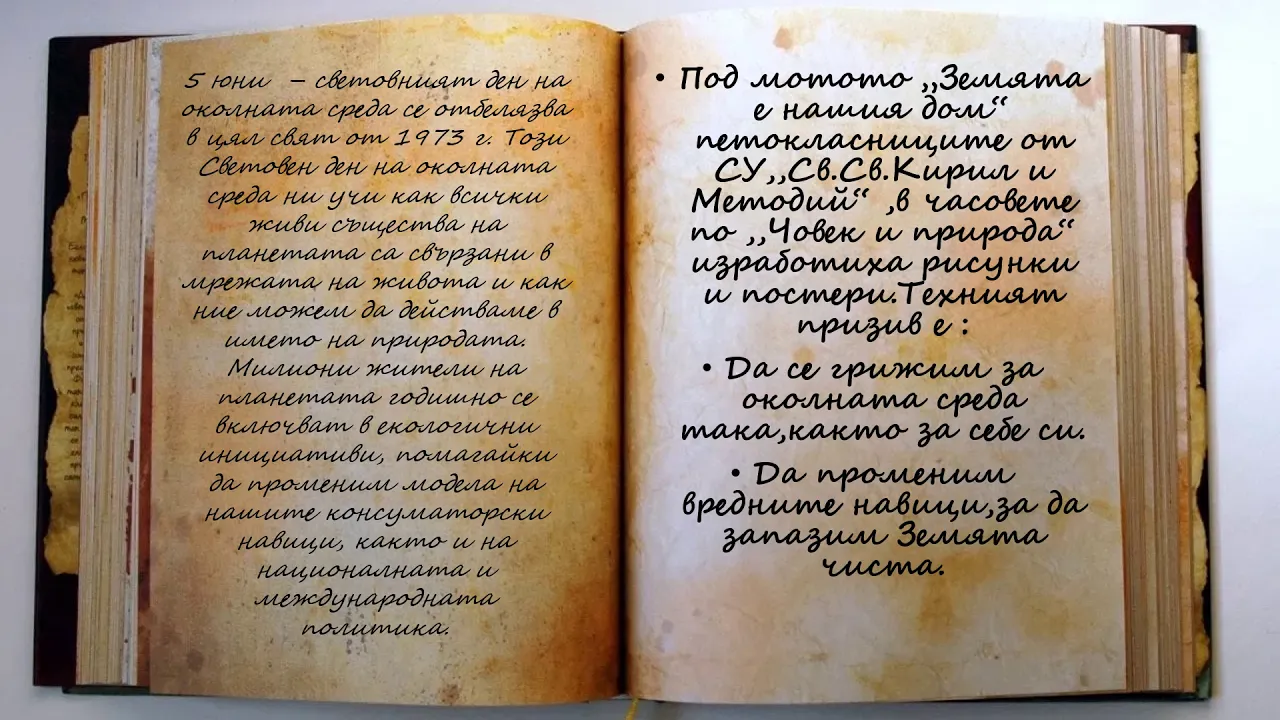 5 юни – световният ден на
околната среда се отбелязва
в цял свят от 1973 г. Този
Световен ден на околната
среда ни учи как всички
живи същества на
планетата са свързани в
мрежата на живота и как
ние можем да действаме в
името на природата.
Милиони жители на
планетата годишно се
включват в екологични
инициативи, помагайки
да променим модела на
нашите консуматорски
навици, както и на
националната и
международната
политика.
• Под мотото ,,Земята
е нашия дом“
петокласниците от
СУ,,Св.Св.Кирил и
Методий“ ,в часовете
по ,,Човек и природа“
изработиха рисунки
и постери.Техният
призив е :
• Да се грижим за
околната среда
така,както за себе си.
• Да променим
вредните навици,за да
запазим Земята
чиста.